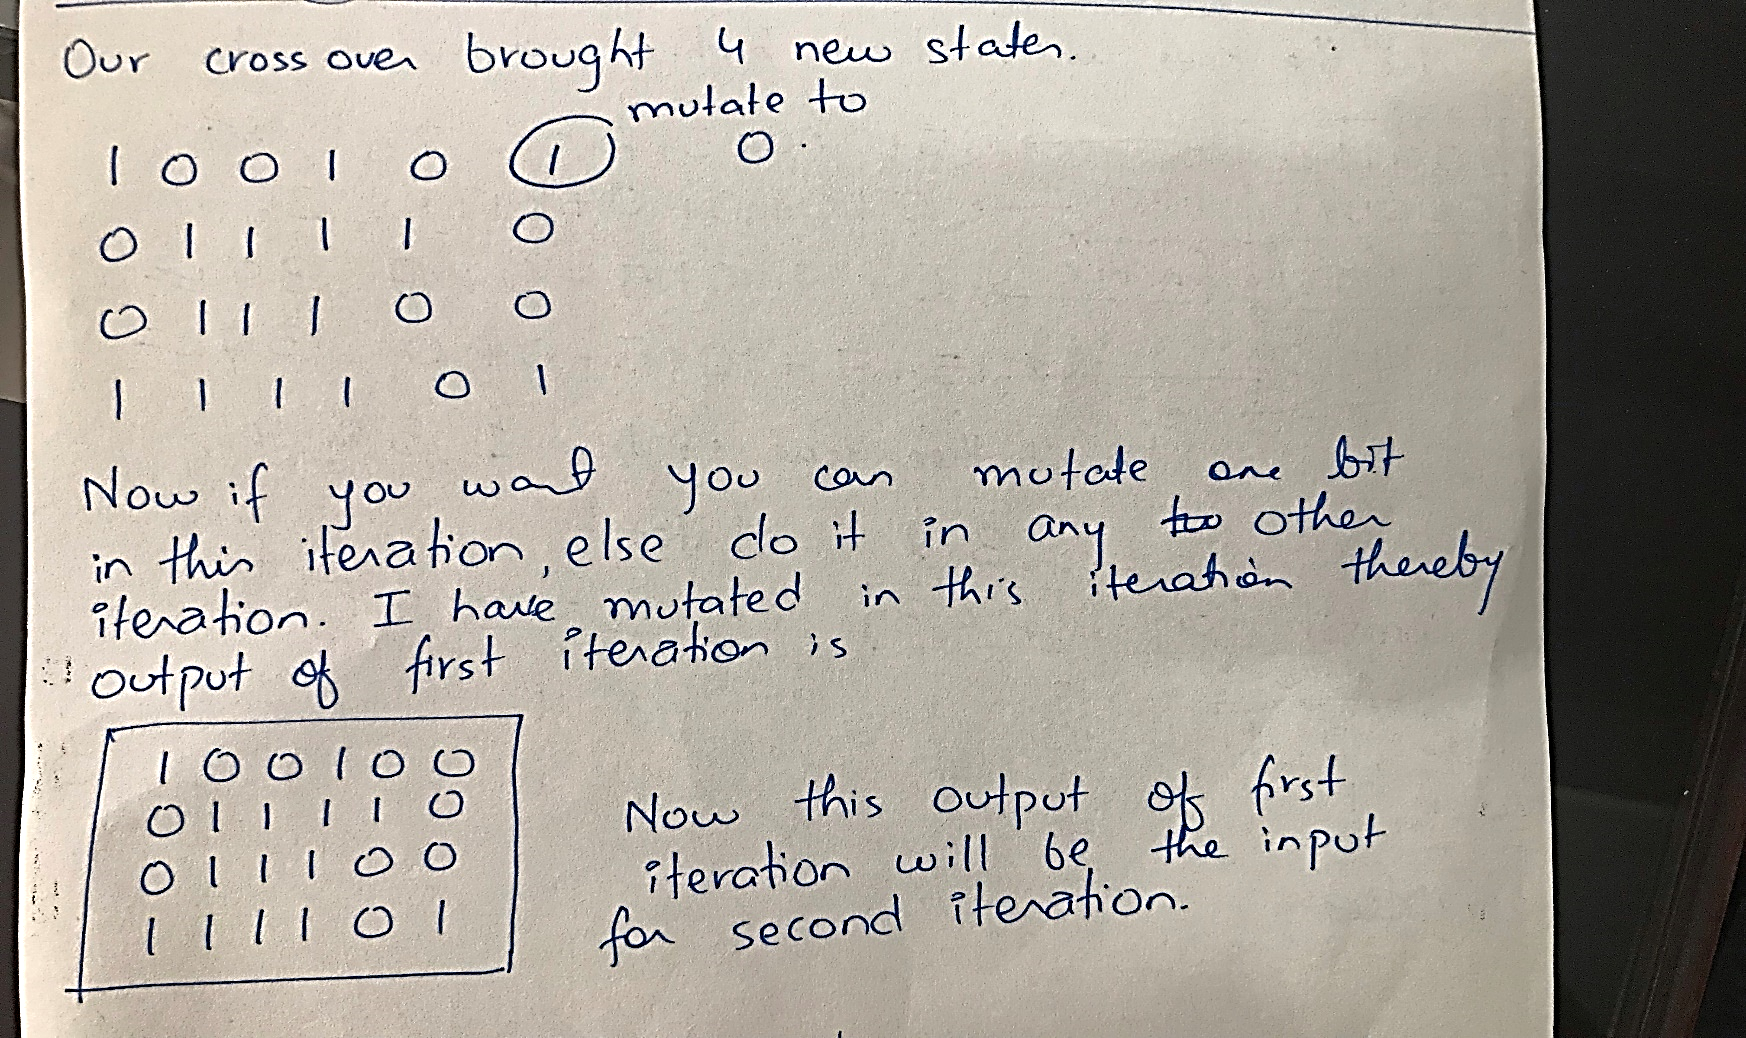 Our cross over brought 4 new states.
mutate to
1 0 0 1 0 1 0.
0 1 1 1 1 0
0 1 1 1 0 0
1 1 1 1 0 1
Now if you want you can mutate one bit
in this iteration, else do it in any to other
iteration. I have mutated in this iteration thereby
output of first iteration is
1 0 0 1 0 0
0 1 1 1 1 0
0 1 1 1 0 0
1 1 1 1 0 1
Now this output of first
iteration will be the input
for second iteration.